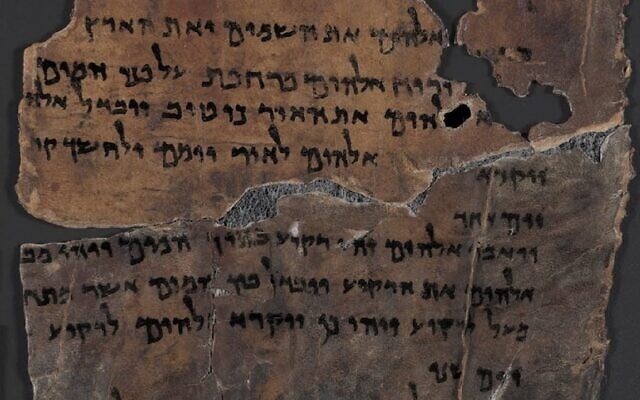 אלהים את השמים ואת הארץ
ורוח אלהים מרחפת על פני המים
את האור כי טוב ויבדל אלה
אלהים לאור יומם ולחשך קר
ויקרא
יום אחד
ויאמר אלהים יהי רקיע בתוך המים ויהי מב
אלהים את הרקיע ויבדל בין המים אשר מתח
מעל לרקיע ויהי כן ויקרא אלהים לרקיע
יום שני